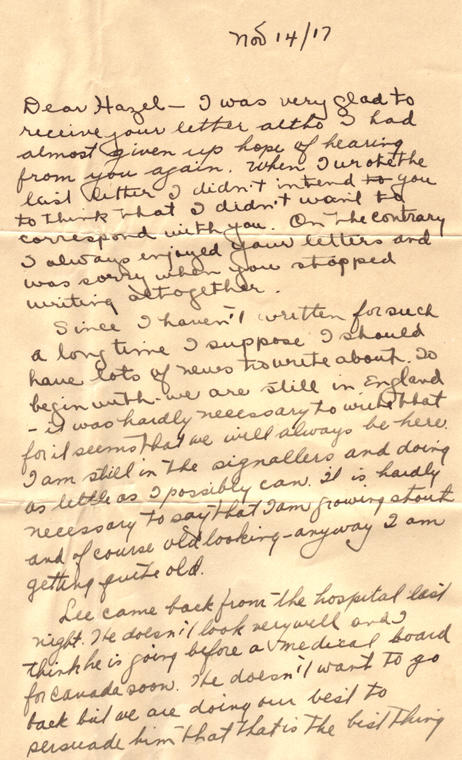 Nov 14/17
Dear Hazel — I was very glad to
receive your letter altho I had
almost given up hope of hearing
from you again. When I wrote the
last letter I didn't intend to you
to think that I didn't want to
correspond with you. On the contrary
I always enjoyed your letters and
was sorry when you stopped
writing altogether.
Since I haven't written for such
a long time I suppose I should
have lots of news to write about. To
begin with - we are still in England
- it was hardly necessary to write that
for it seems that we will always be here.
I am still in the signallers and doing
as little as I possibly can. It is hardly
necessary to say that I am growing stout
and of course old looking - anyway I am
getting quite old.
Lee came back from the hospital last
night. He doesn't look very well and I
think he is going before a medical board
for Canada soon. He doesn't want to go
back but we are doing our best to
persuade him that that is the best thing